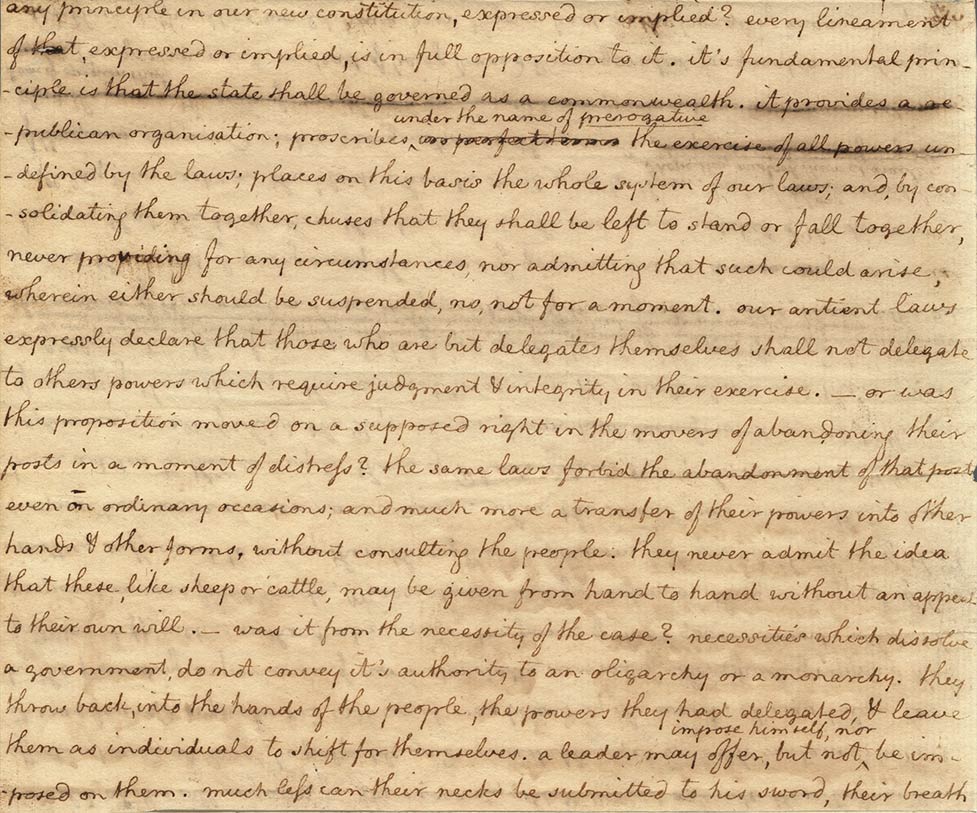 any principle in our new constitution, expressed or implied? every lineament
of that, expressed or implied, is in full opposition to it. it's fundamental prin-
-ciple is that the state shall be governed as a commonwealth. it provides a re
under the name of prerogative
-publican organisation; proscribes, the exercise of all powers un
-defined by the laws; places on this basis the whole system of our laws; and, by con-
-solidating them together, chuses that they shall be left to stand or fall together,
never providing for any circumstances, nor admitting that such could arise,
wherein either should be suspended, no, not for a moment. our antient laws
expressly declare that those who are but delegates themselves shall not delegate
to others powers which require judgment & integrity in their exercise. — or was
this proposition moved on a supposed right in the movers of abandoning their
posts in a moment of distress? the same laws forbid the abandonment of that post
even on ordinary occasions; and much more a transfer of their powers into other
hands & other forms, without consulting the people. they never admit the idea
that these, like sheep or cattle, may be given from hand to hand without an appeal
to their own will. — was it from the necessity of the case? necessities which dissolve
a government, do not convey it's authority to an oligarchy or a monarchy. they
throw back, into the hands of the people, the powers they had delegated, & leave
impose himself, nor
them as individuals to shift for themselves. a leader may offer, but not, be im-
-posed on them. much less can their necks be submitted to his sword, their breath